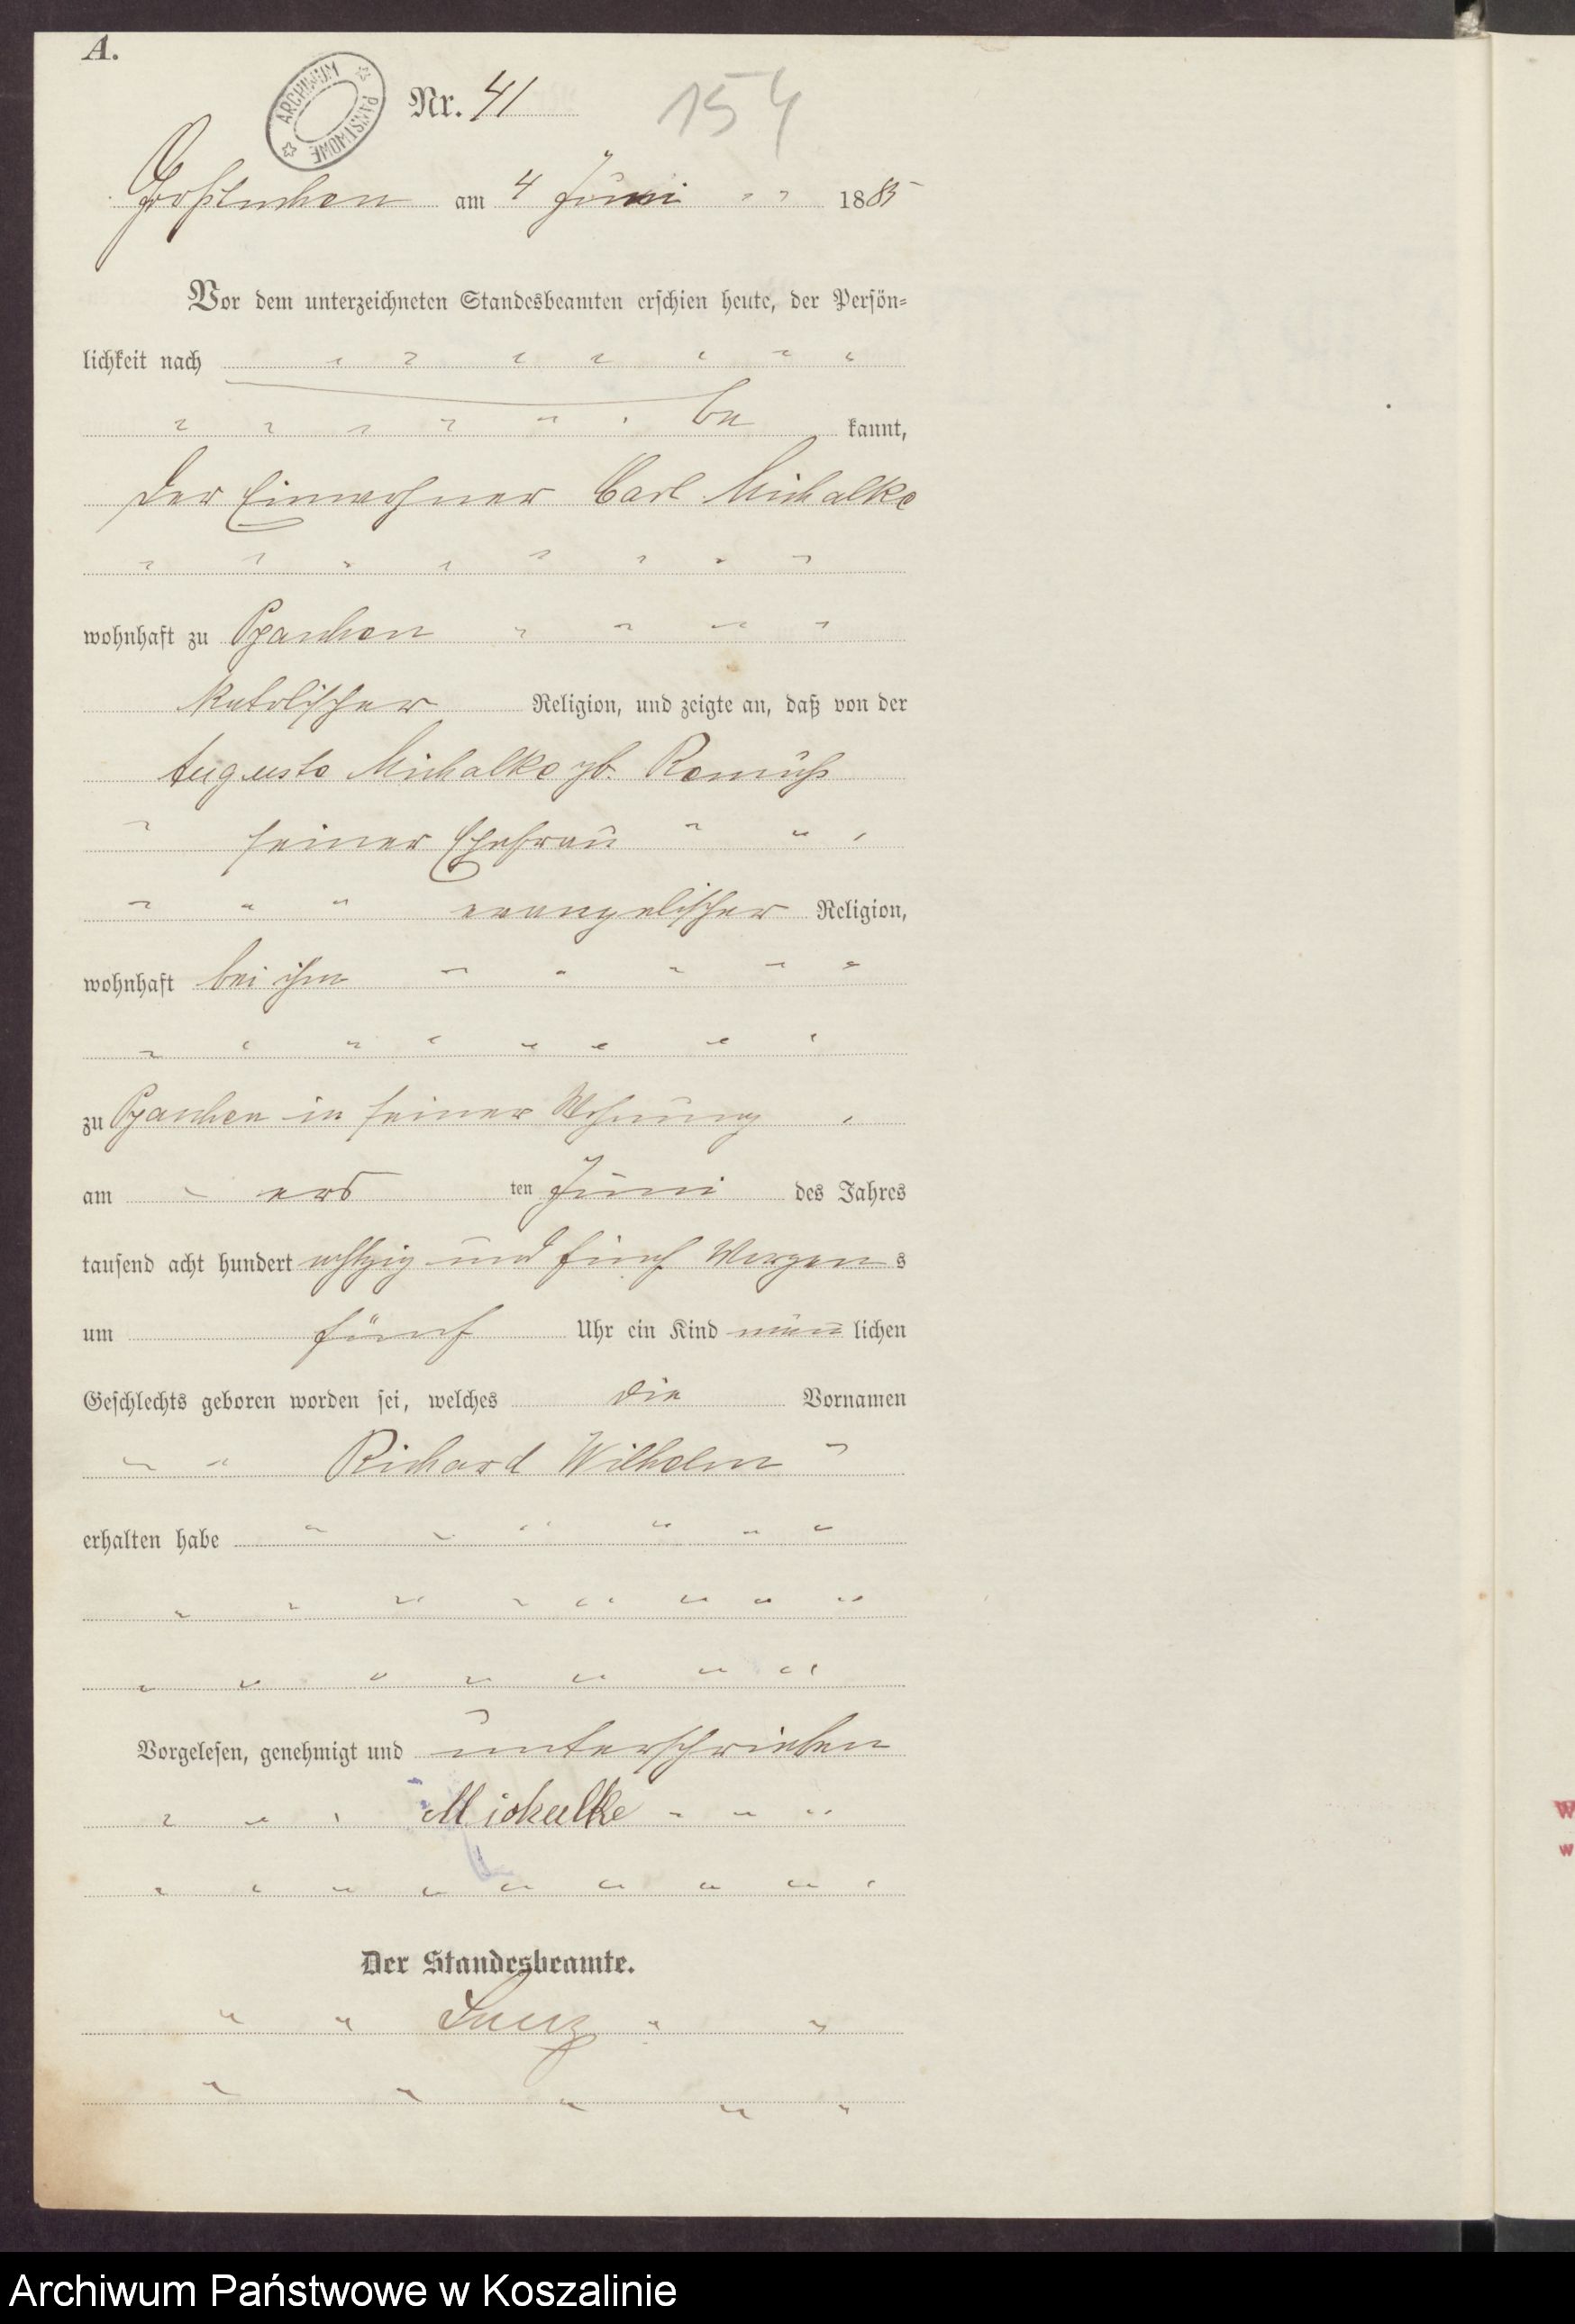 A.
ARCHIWUM PAŃSTWOWE
Nr. 41
154
Großtuchen am 4 Juni 1885
Vor dem unterzeichneten Standesbeamten erschien heute, der Persön=
lichkeit nach
be kannt,
der Einwohner Carl Michalke
wohnhaft zu
katolischer Religion, und zeigte an, daß von der
Auguste Michalke gb. Remuß
seiner Ehefrau
evangelischer Religion,
wohnhaft bei ihm
zu in seiner Wohnung
am ers ten Juni des Jahres
tausend acht hundert achtzig und fünf Morgens
um fünf Uhr ein Kind männlichen
Geschlechts geboren worden sei, welches die Vornamen
Richard Wilhelm
erhalten habe
Vorgelesen, genehmigt und unterschrieben
Michalke
Der Standesbeamte.
W
w
Archiwum Państwowe w Koszalinie